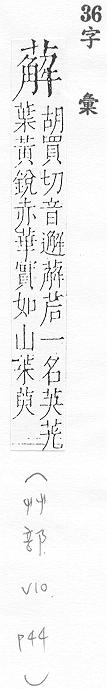 36
字彙
薢
胡買切音邂薢茩一名英茪
葉黃銳赤華實如山茱萸
(艸部 V10. P44)